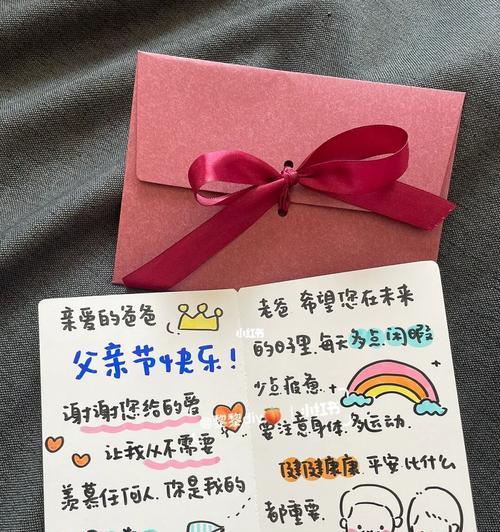 亲爱的爸爸
父亲节快乐!
谢谢您给的爱
让我从不需要
羡慕任何人.你是我的
老爸 希望您在未来
的日子里.每天多点闲暇
少点疲惫.
要注意身体.多运动.
健健康康 平安比什么
都重要.
小红书
小红书